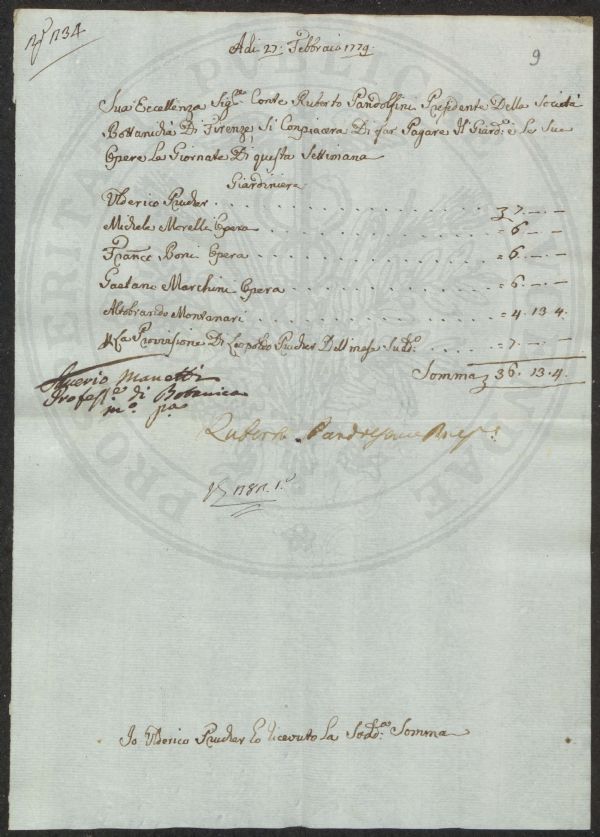 N.º 1734
Adi 27: Febbraio 1779.
9
Sua Eccellenza Sig.re Conte Ruberto Pandolfini Presidente Della Società
Bottanicha Di Firenze, Si Conpiacera Di far Pagare Il Giard.e e Le Sue
Opere La Giornate Di questa Settimana
Giardiniere
Ulderico Prucher . . . 7. — —
Michele Morelli Opera . . . = 6. — —
Franc.o Boni Opera . . . = 6. — —
Gaetano Marchini Opera . . . = 6. — —
Altobrando Montanari . . . = 4. 13. 4.
La Provisione Di Leopoldo Prucher Dell mese Sud.o . . . = 7. — —
Somma 36. 13. 4.
Saverio Manetti
Profess.e di Botanica
m.o p.a
Ruberto Pandolfini Pres.e
1781. 1.o
Io Ulderico Prucher ho ricevuto La Sodd.a Somma
PROSPERITATI PUBLICAE